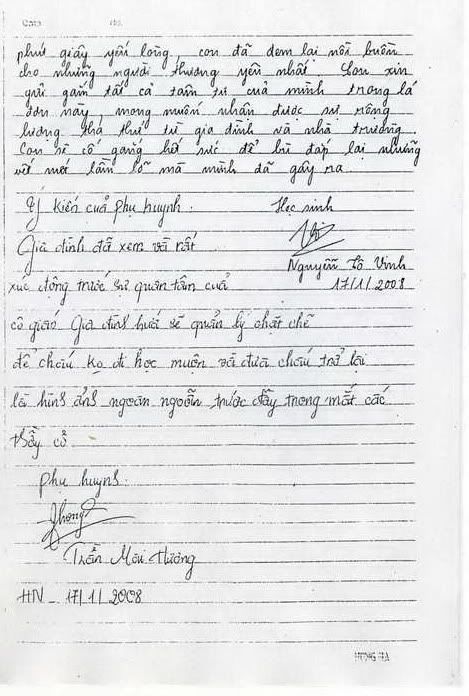 phút giây yếu lòng, con đã đem lại nỗi buồn
cho những người thương yêu nhất. Con xin
gửi gắm tất cả tâm tư của mình trong lá
đơn này, mong muốn nhận được sự rộng
lượng tha thứ từ gia đình và nhà trường.
Con sẽ cố gắng hết sức để bù đắp lại những
vết mới lầm lỗ mà mình đã gây ra
Ý kiến của phụ huynh. Học sinh
Gia đình đã xem và rất
Nguyễn Tô Vinh
xúc động trước sự quan tâm của 17/1/2008
cô giáo. Gia đình hứa sẽ quản lý chặt chẽ
để cháu ko đi học muộn và đưa cháu trở lại
là hình ảnh ngoan ngoãn trước đây trong mắt các
thầy cô
phụ huynh.
Trần Hương
HN 17/1/2008